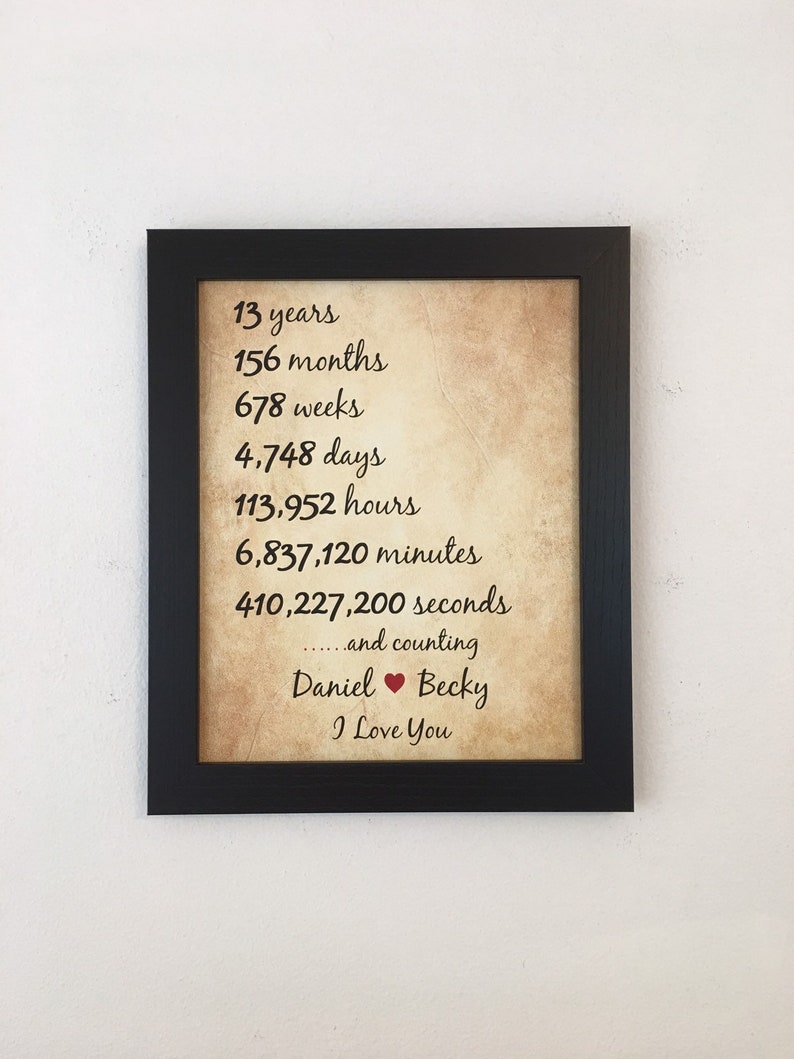 13 years
156 months
678 weeks
4,748 days
113,952 hours
6,837,120 minutes
410,227,200 seconds
......and counting
Daniel ♥ Becky
I Love You